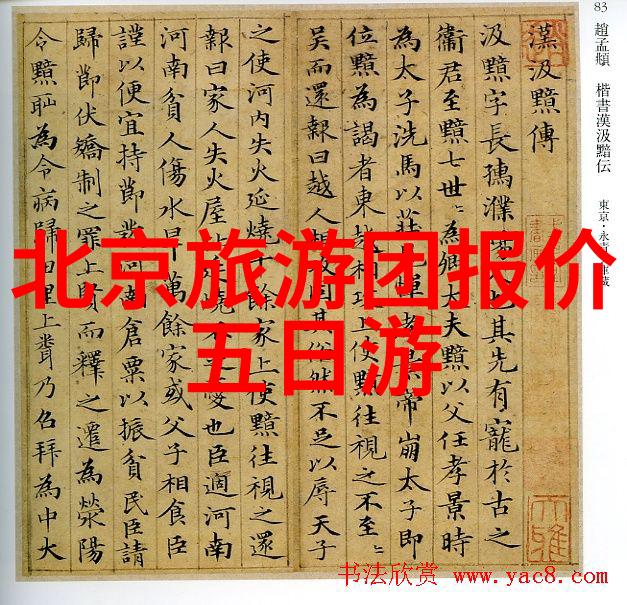 83 趙孟頫 楷書漢汲黯伝 東京・永青文庫蔵
漢汲黯傳
汲黯字長孺濮陽人也其先有寵於古之
衞君至黯七世〻為卿大夫黯以父任孝景時
為太子洗馬以莊見憚孝景帝崩太子即
位黯為謁者東越相攻上使黯往視之不至〻
吳而還報曰越人相攻固其俗然不足以辱天子
之使河內失火延燒千餘家上使黯往視之還
報曰家人失火屋比延燒不足憂也臣過河南
河南貧人傷水旱萬餘家或父子相食臣
謹以便宜持節發河南倉粟以振貧民臣請
歸節伏矯制之罪上賢而釋之遷為滎陽
令黯恥為令病歸田里上聞乃召拜為中大
大雅
北京旅游团报价
五日游
书法欣赏 www.yac8.com